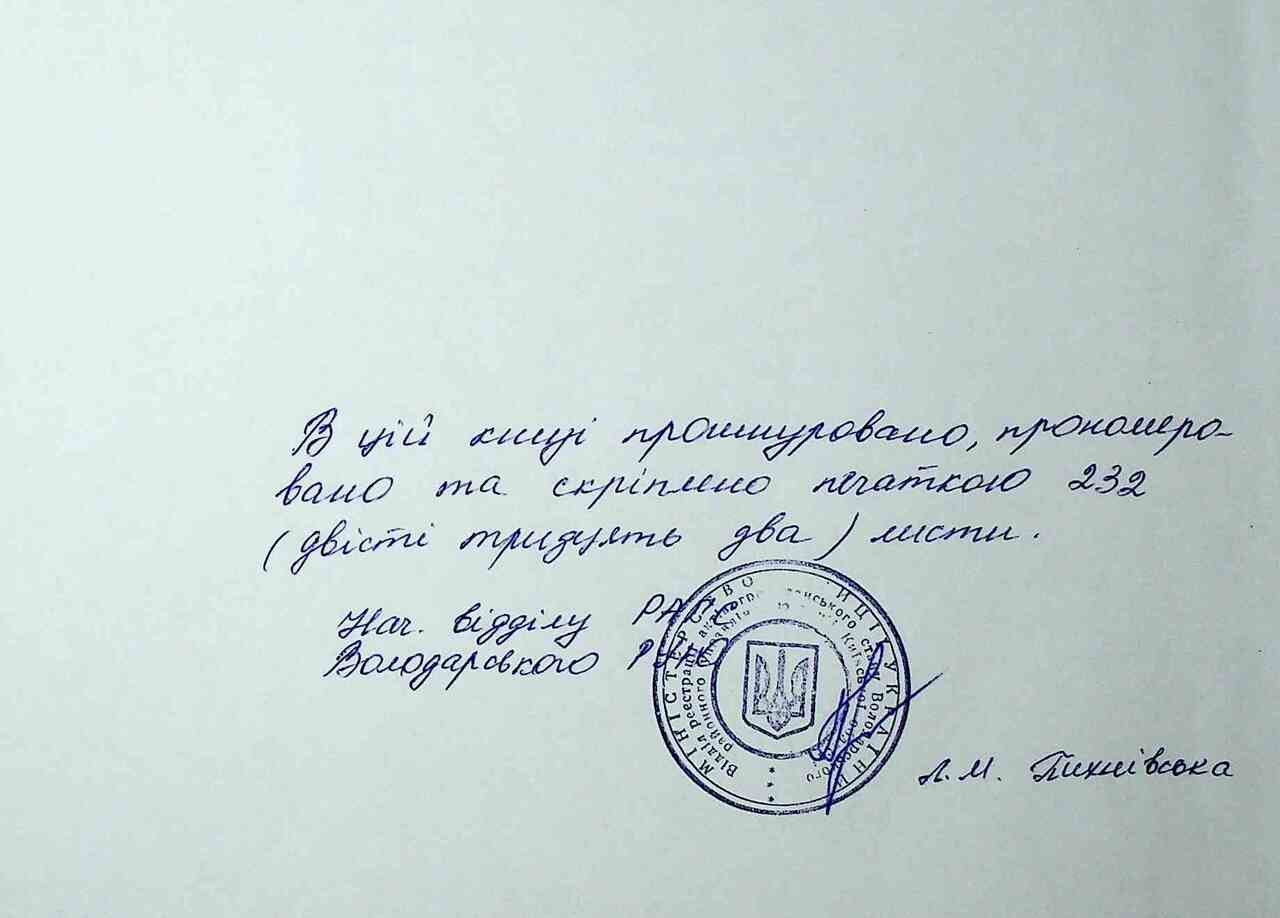 В цій книзі прошнуровано, прономеро-
вано та скріплено печаткою 232
(двісті тридцять два) листи.
Нач. відділу РАЦС
Володарського РУЮ
МІНІСТЕРСТВО ЮСТИЦІЇ УКРАЇНИ
Відділ реєстрації актів громадянського стану Володарського
районного управління юстиції Київської області
Л.М. Тихнівська